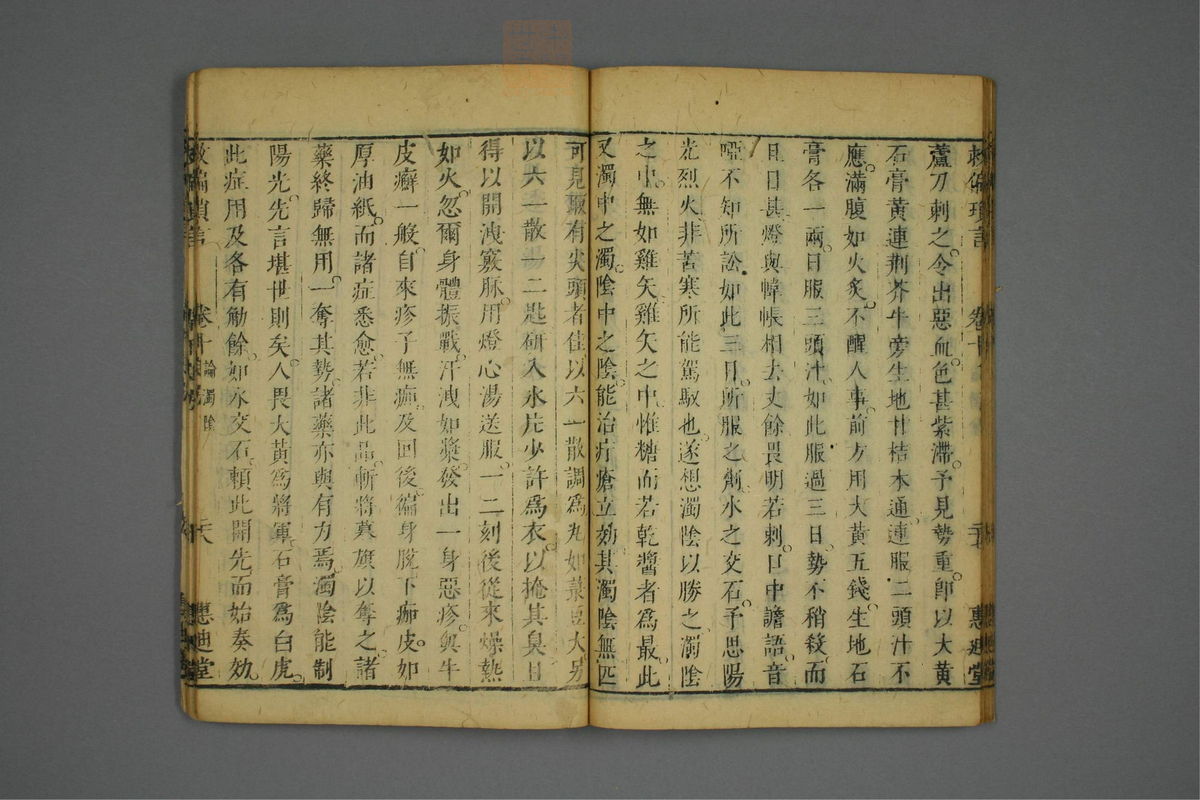 救偏瑣言 卷十 惠迪堂
蘆刀刺之。令出惡血。色甚紫滯。予見勢重。卽以大黃
石膏黃連荆芥牛旁生地甘桔木通連服二頭汁不
應。滿腹如火炙。不醒人事。前方用大黃五錢。生地石
膏各一兩。日服三頭汁。如此服過三日。勢不稍殺。而
且日甚。燈與幃帳相去丈餘。畏明若刺。口中譫語。音
啞不知所訟。如此三日。所服之劑。水之交石。予思陽
光烈火。非苦寒所能駕馭也。遂想濁陰以勝之。濁陰
之中。無如雞矢。雞矢之中。惟糖而若乾醬者爲最。此
又濁中之濁。陰中之陰。能治疔瘡立効。其濁陰無匹
可見。取有尖頭者佳。以六一散調爲丸如菉豆大。另
以六一散一二匙。硏入氷片少許爲衣。以掩其臭。日
得以開洩竅脉。用燈心湯送服。一二刻後。從來燥熱
如火。忽爾身體振戰。汗洩如漿。發出一身惡疹。與牛
皮癬一般。自來疹子無痂。及回後。徧身脫下痂皮。如
厚油紙。而諸症悉愈。若非此品。斬將搴旗以奪之。諸
藥終歸無用。一奪其勢。諸藥亦與有力焉。濁陰能制
陽光。先言堪世則矣。人畏大黃爲將軍。石膏爲白虎。
此症用及各有勉餘。如水交石。賴此開先而始奏効。
救偏瑣言 卷十 論濁陰 惠迪堂